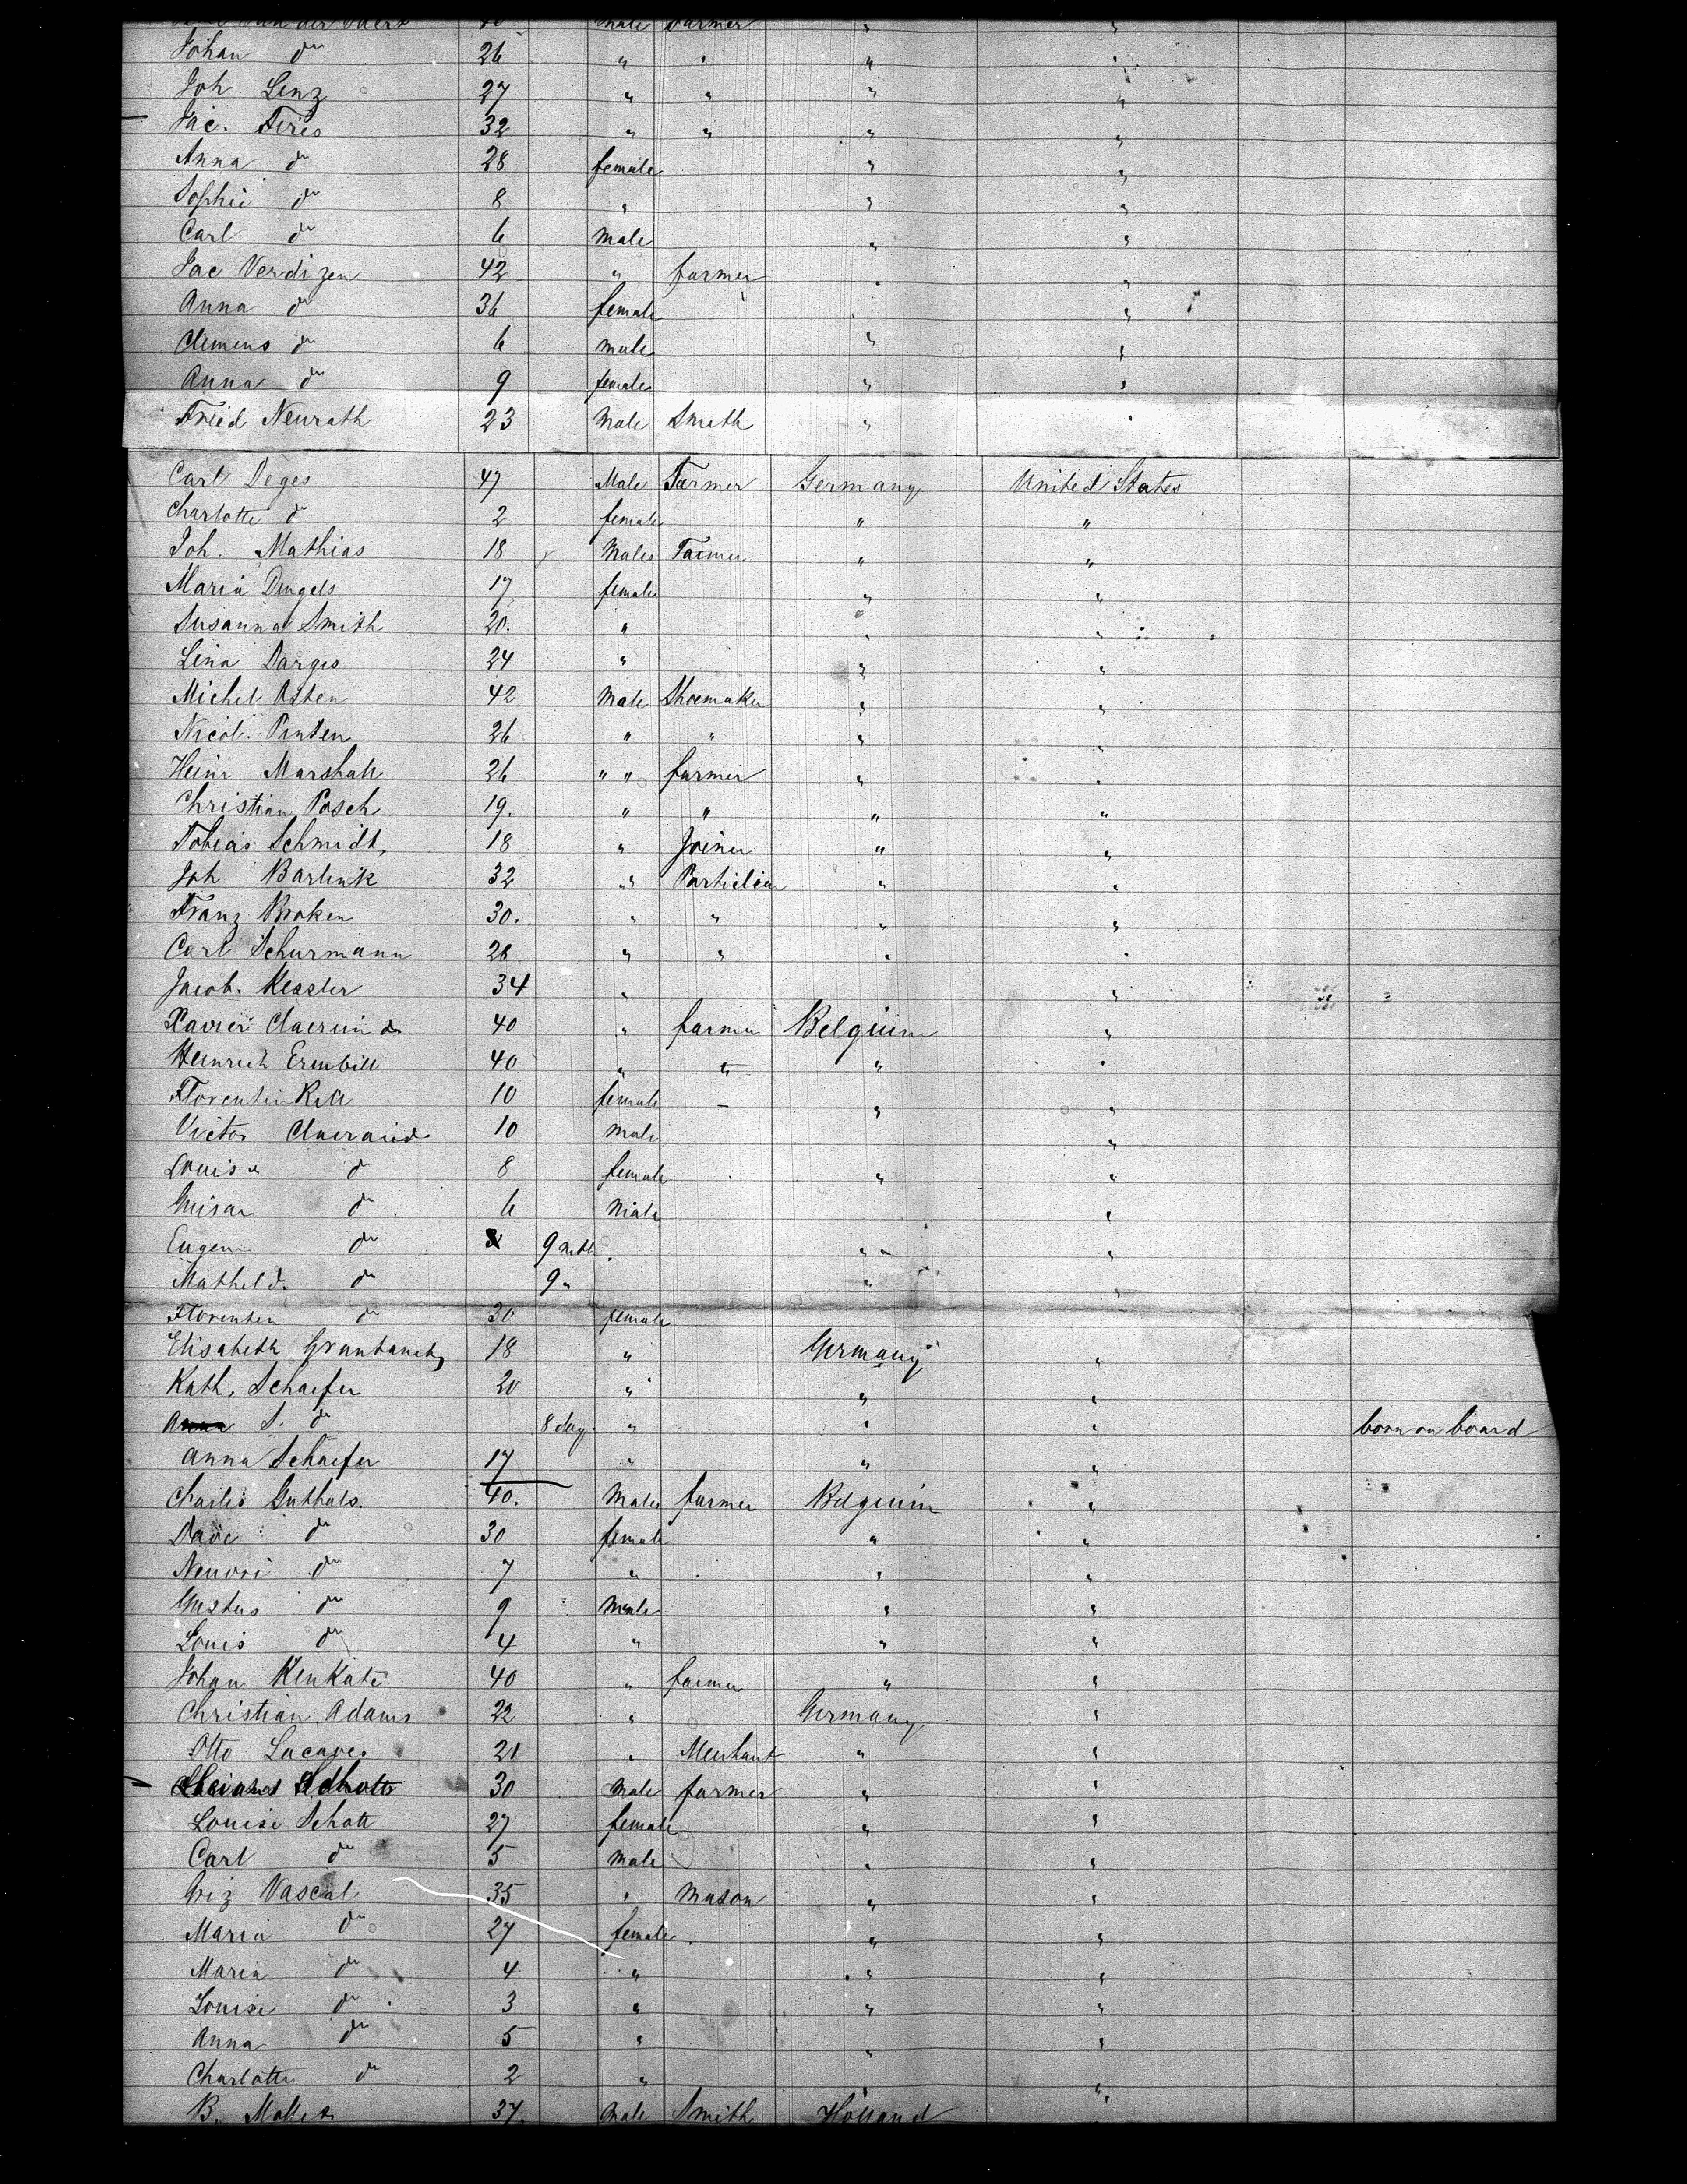 male Farmer " "
Johan do 26 " " " "
Joh Lenz 27 " " " "
Jac. Fires 32 " " " "
Anna do 28 female " "
Sophie do 8 " " "
Carl do 6 Male " "
Jac Verdizen 42 " farmer " "
Anna do 36 female " "
Clemens do 6 male " "
Anna do 9 female " "
Fried Neurath 23 Male Smith " "
Carl Deges 47 Male Farmer Germany United States
Charlotte do 2 female " "
Joh. Mathias 18 Male Farmer " "
Maria Dengels 17 female " "
Susanna Smith 20. " " "
Lina Darges 24 " " "
Michel Osten 42 Male Shoemaker " "
Nicol. Pinten 26 " " " "
Heinr Marshall 26 " " farmer " "
Christian Posch 19. " " " "
Tobias Schmidt, 18 " Joiner " "
Joh Barlink 32 " " "
Franz Broken 30. " " " "
Carl Schurmann 28 " " " "
Jacob. Kessler 34 " "
Xavier 40 " farmer Belgium "
Heinrich 40 " " " "
Florentin 10 female - " "
Victor 10 Male "
Louise do 8 female " "
do 6 Male "
Eugen do 9 mth " " "
Mathild. do 9 " " "
Florenten do 30 female
Elisabeth 18 " Germany "
Kath. Schaefer 20 " " "
S. do 8 days " " " born on board
Anna Schaefer 17 " " "
Charles Guthals. 40. Male farmer Belgium "
do 30 female " "
do 7 " " "
Gustus do 9 Male " "
Louis do 4 " " "
Johan Kenkate 40 " farmer " "
Christian Adams 22 " Germany "
Otto 21 " Merchant " "
Schott 30 Male farmer " "
Louise Schott 27 female " "
Carl do 5 male " "
Vascal 35 " Mason " "
Maria do 27 female " "
Maria do 4 " " "
Louise do 3 " " "
Anna do 5 " " "
Charlotte do 2 " "
B. 37. Male Smith Holland